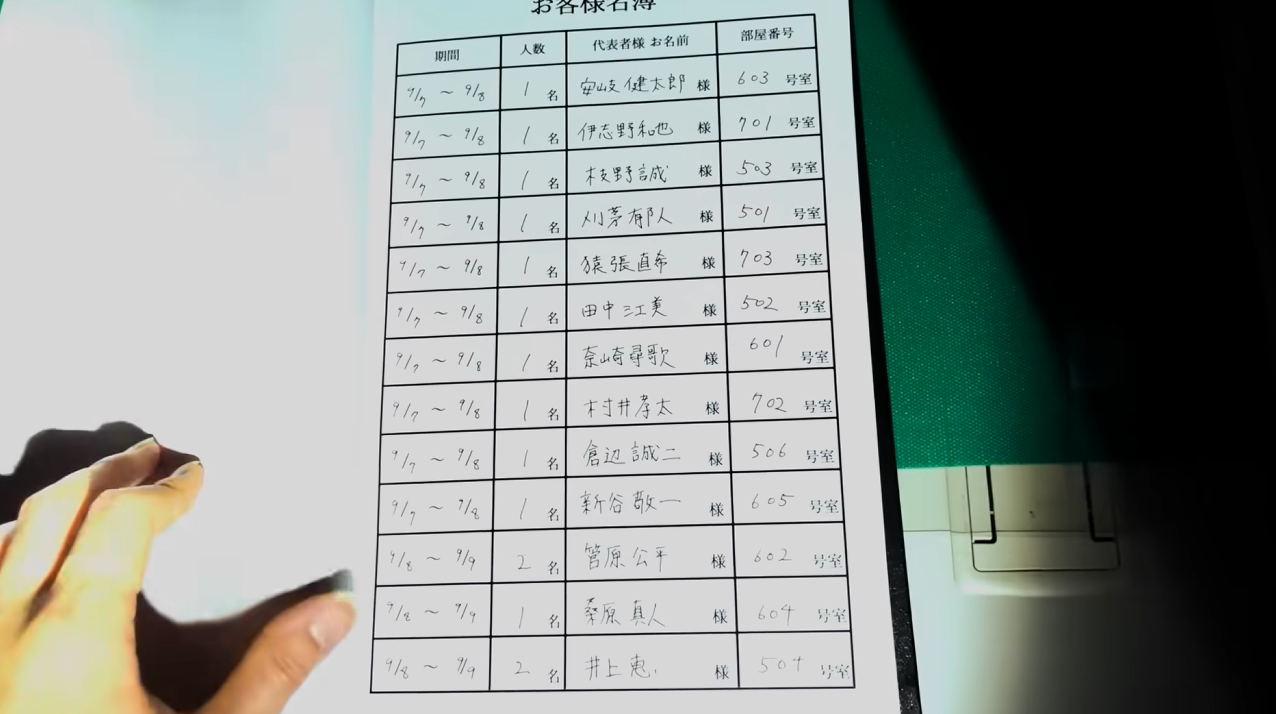 お客様名簿
期間 人数 代表者様 お名前 部屋番号
9/7 ～ 9/8 1 名 安岐 健太郎 様 603 号室
9/7 ～ 9/8 1 名 伊志野和也 様 701 号室
9/7 ～ 9/8 1 名 枝野誠 様 503 号室
9/7 ～ 9/8 1 名 刈茅有隣人 様 501 号室
9/7 ～ 9/8 1 名 猿張直希 様 703 号室
9/7 ～ 9/8 1 名 田中江美 様 502 号室
9/7 ～ 9/8 1 名 奈崎尋歌 様 601 号室
9/7 ～ 9/8 1 名 村井孝太 様 702 号室
9/7 ～ 9/8 1 名 倉辺誠二 様 506 号室
9/7 ～ 9/8 1 名 新谷敬一 様 605 号室
9/8 ～ 9/9 2 名 管原公平 様 602 号室
9/8 ～ 9/9 1 名 桑原真人 様 604 号室
9/8 ～ 9/9 2 名 井上恵 様 504 号室